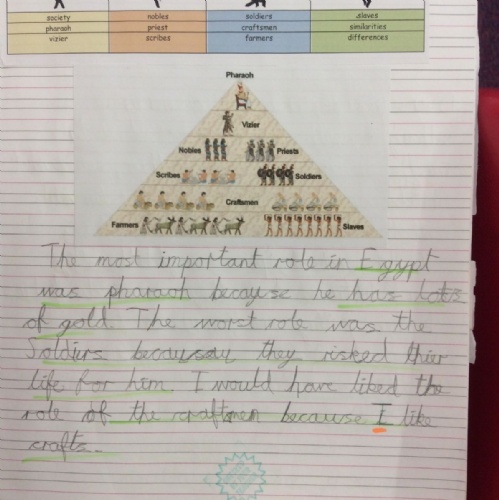 society nobles soldiers slaves
pharaoh priest craftsmen similarities
vizier scribes farmers differences
Pharaoh
Vizier
Nobles Priests
Scribes Soldiers
Craftsmen
Farmers Slaves
The most important role in Egypt
was pharaoh because he has lots
of gold. The worst role was the
Soldiers becausay they risked thier
life for him. I would have liked the
role of the craftsmen because I like
crafts.